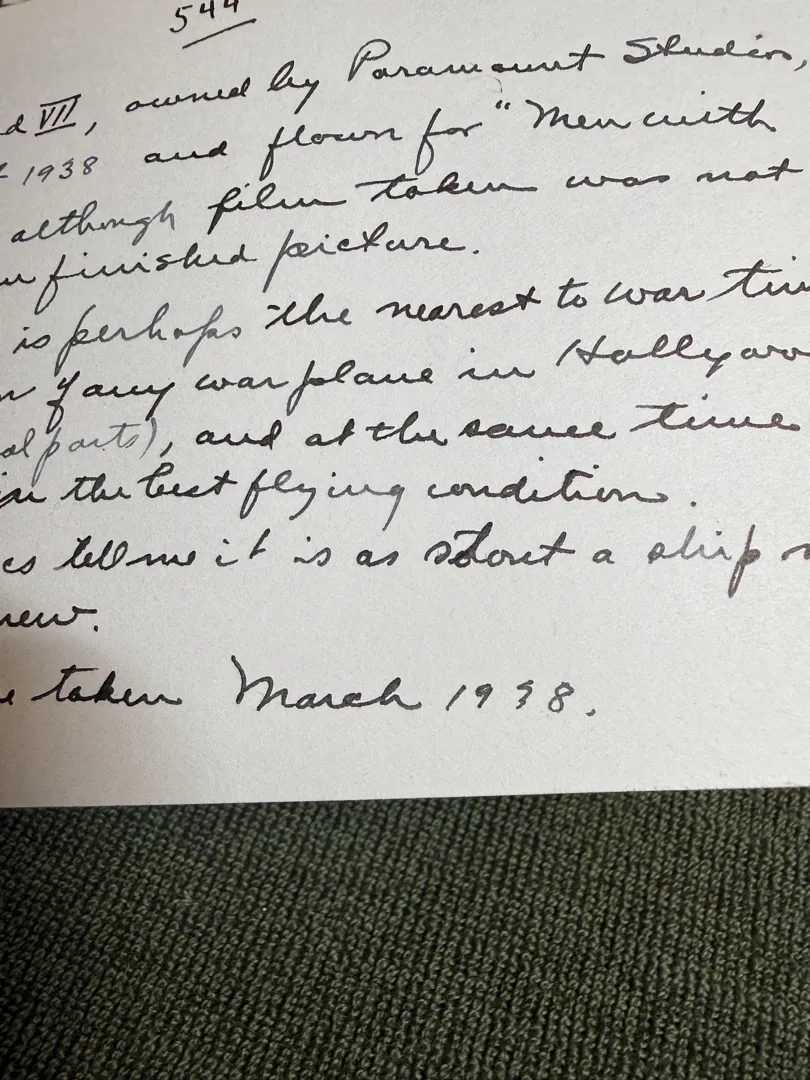 544
d VII, owned by Paramount Studios,
1938 and flown for "Men with
although film taken was not
finished picture.
is perhaps the nearest to war tim
of any war plane in Hollywoo
al parts), and at the same time
in the best flying condition.
es tell me it is as stout a ship
new.
e taken March 1938.